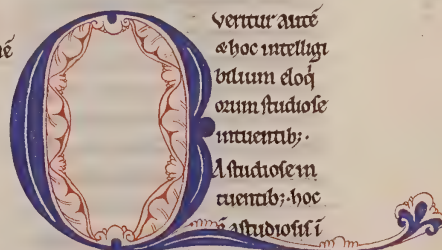 Q
veritur autē
& hoc intelligi
bilium eloq̄
orum studiose
intuentib;.
A studiose in
tuentib; hoc
ē a studiosis i